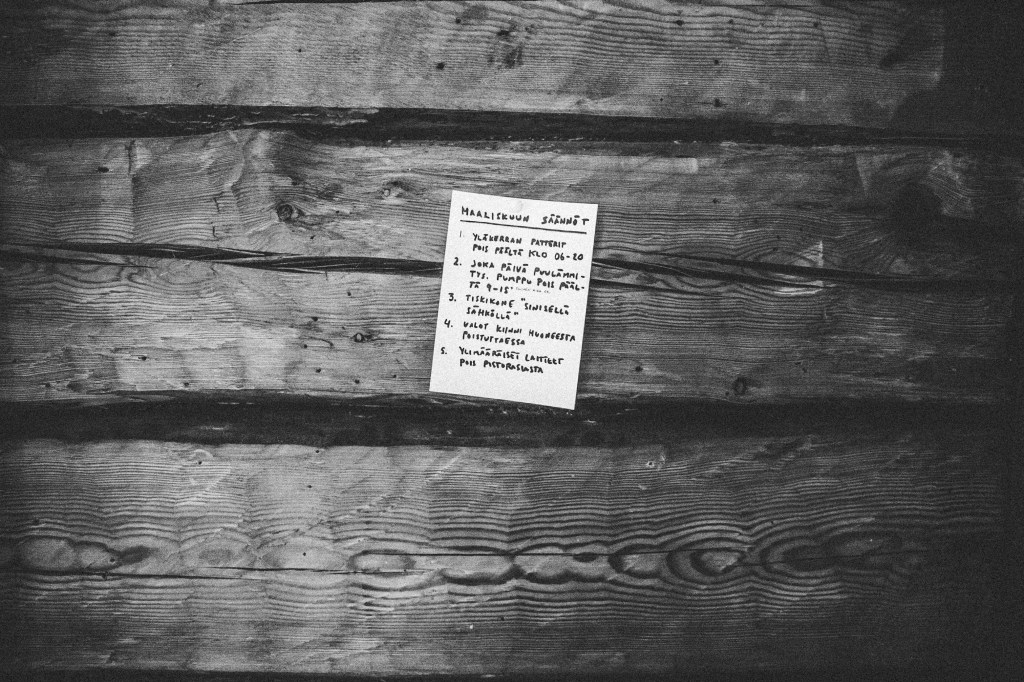 MAALISKUUN SÄÄNNÖT
1. YLÄKERRAN PATTERIT
POIS PÄÄLTÄ KLO 06-20
2. JOKA PÄIVÄ PUULÄMMI-
TYS. PUMPPU POIS PÄÄL-
TÄ 9-15
3. TISKIKONE "SINISELLÄ
SÄHKÖLLÄ"
4. VALOT KIINNI HUONEESTA
POISTUTTAESSA
5. YLIMÄÄRÄISET LAITTEET
POIS PISTORASIASTA